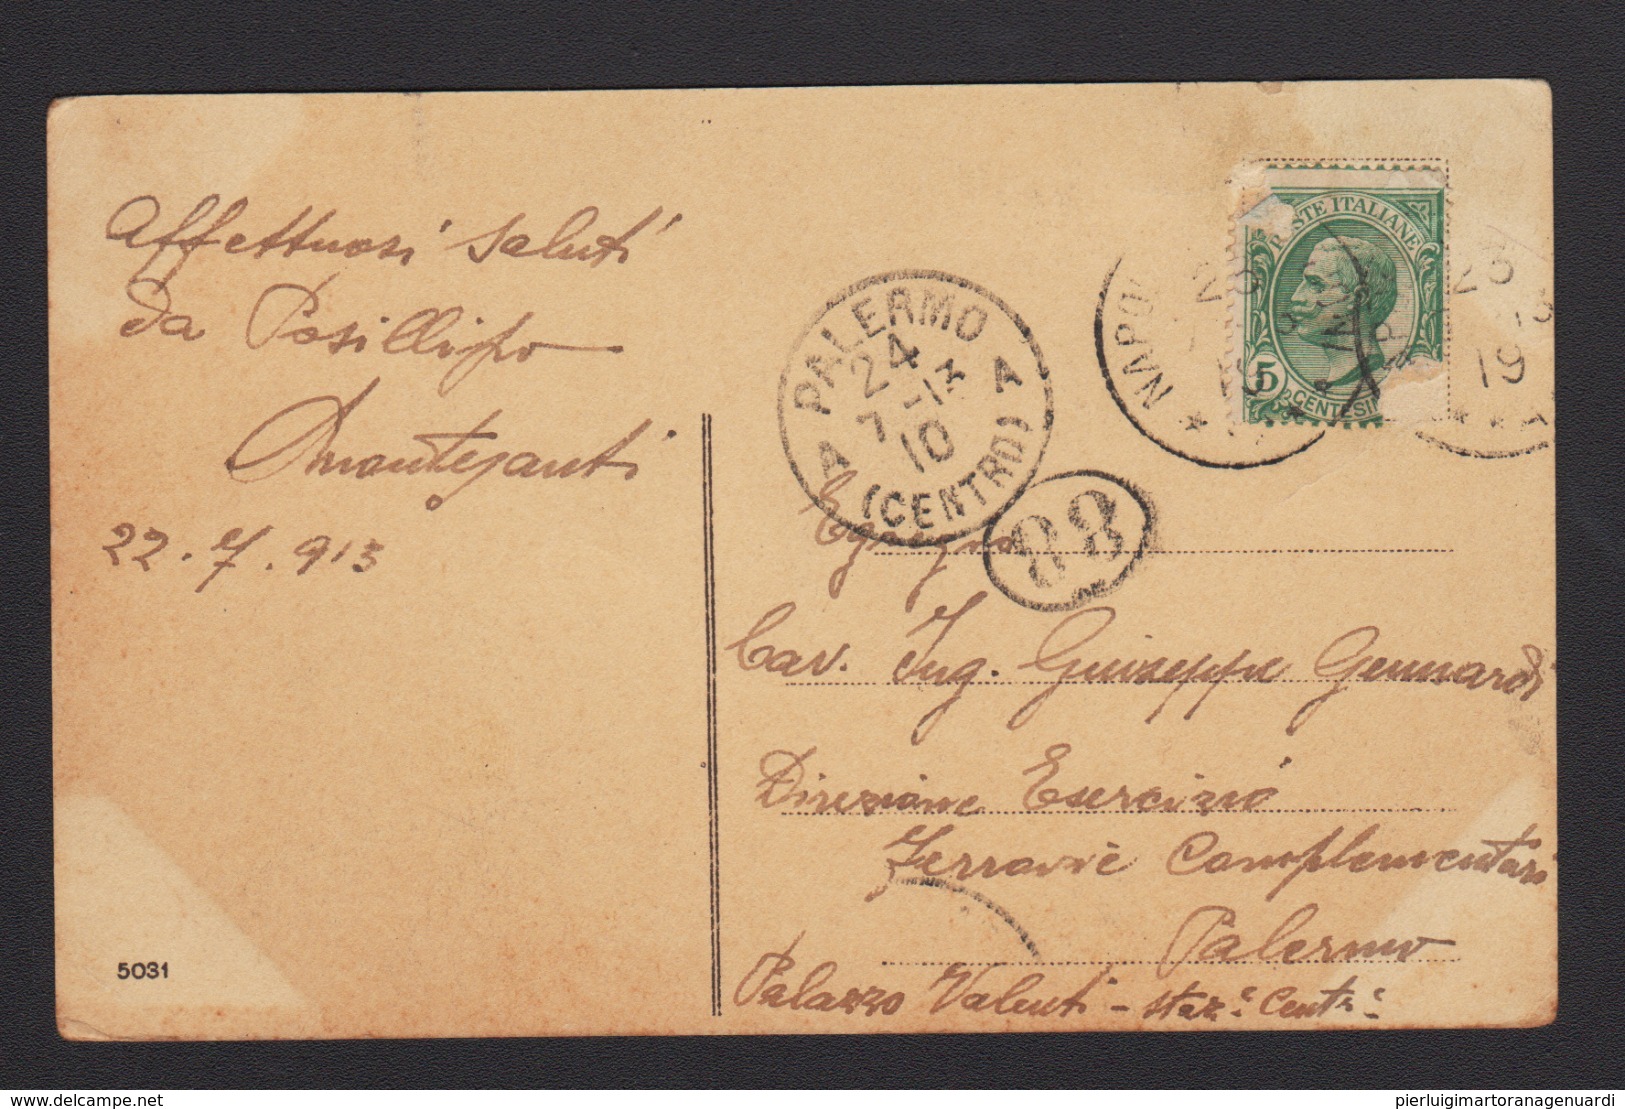 Affettuosi saluti
da Posillipo
22.7.913
5031
POSTE ITALIANE
5
CENTESIMI
NAPOLI
23
19
PALERMO
24
7-13
10
A A
(CENTRO)
88
Egregio
Cav. Ing. Giuseppe Gennardi
Direzione Esercizio
Ferrovie Complementari
Palermo
Palazzo Valenti - Staz.e Centr.e
delcampe.net
pierluigimartoranagenuardi